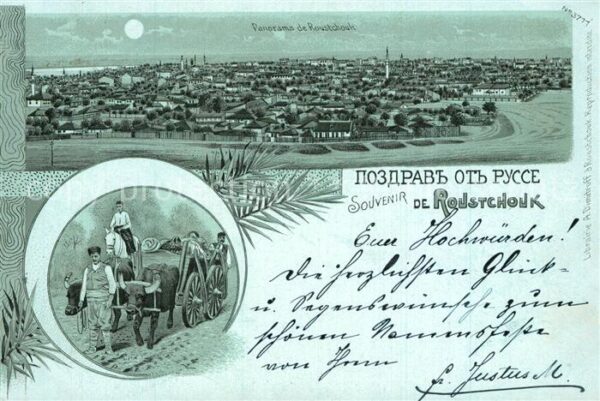 Panorama de Roustchouk
ПОЗДРАВЪ ОТЪ РУССЕ
SOUVENIR DE ROUSTCHOUK
Euer Hochwürden!
Die herzlichsten Glück-
u. Segenswünsche zum
schönen Namensfeste
von Ihrem
fr. Justus M.
Librairie
d Roustchouk Reproduction interdite